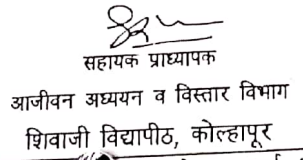 सहायक प्राध्यापक
आजीवन अध्ययन व विस्तार विभाग
शिवाजी विद्यापीठ, कोल्हापूर